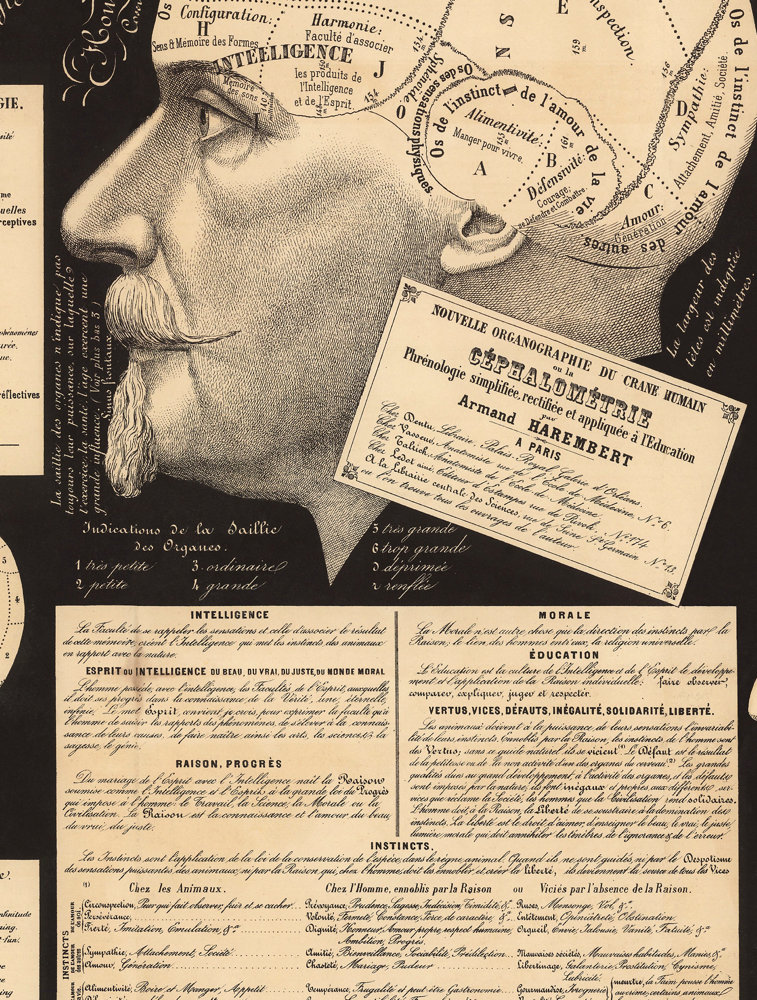 Configuration:
H
Sens & Mémoire des Formes
Harmonie:
Faculté d'associer
INTELLIGENCE
J
les produits de
l'Intelligence
et de l'Esprit.
Mémoire
des sons
I
Os
154
O
Sphéricité.
Os des sensations physiques.
E
N
S
159
nspection.
Os de l'instinct de l'amour de la vie
Alimentivité:
Manger pour vivre.
A
B
Défensivité:
Courage.
se Défendre et Combattre.
C
Amour:
Génération
D
Sympathie:
Attachement, Amitié, Société
Os de l'instinct de l'amour des autres
GIE.
uelles
rceptives
phénomènes
réflectives
La saillie des organes n'indique pas
toujours leur puissance, sur laquelle
l'exercice, la santé, l'âge exercent une
grande influence. (Voir plus bas 3
Sinus frontaux.)
La largeur des
têtes est indiquée
en millimètres.
NOUVELLE ORGANOGRAPHIE DU CRANE HUMAIN
ou la
CÉPHALOMÉTRIE
Phrénologie simplifiée, rectifiée et appliquée à l'Education
par
Armand HAREMBERT
A PARIS
Chez Dentu, Libraire, Palais-Royal, Galerie d'Orléans.
Chez Vasseur, Anatomiste rue de l'Ecole de Médecine, N° 6.
Chez Talrich, Anatomiste de l'Ecole de Médecine.
Chez Ledot ainé Editeur d'Estampes rue de Rivoli, N° 174
A la Librairie centrale des Sciences rue de Seine St Germain N° 13.
où l'on trouve tous les ouvrages de l'auteur.
Indications de la Saillie
des Organes.
1 très petite 3 ordinaire
2 petite 4 grande
5 très grande
6 trop grande
d déprimée
r renflée
INTELLIGENCE
La Faculté de se rappeler les sensations et celle d'associer le résultat
de cette mémoire, créent l'Intelligence qui met les instincts des animaux
en rapport avec la nature.
ESPRIT OU INTELLIGENCE DU BEAU, DU VRAI, DU JUSTE, DU MONDE MORAL
L'homme possède, avec l'intelligence, les Facultés de l'Esprit, auxquelles
il doit ses progrès dans la connaissance de la Vérité, une, éternelle,
infinie. Le mot Esprit, convient, je crois, pour exprimer la faculté qu'a
l'homme de saisir les rapports des phénomènes, de s'élever à la connais-
sance de leurs causes, de faire naître ainsi les arts, les sciences, la
sagesse, le génie.
RAISON, PROGRÈS
Du mariage de l'Esprit avec l'Intelligence nait la Raison
soumise comme l'Intelligence et l'Esprit, à la grande loi du Progrès
qui impose à l'homme: le Travail, la Science, la Morale ou la
Civilisation. La Raison est la connaissance et l'amour du beau,
du vrai, du juste.
MORALE
La Morale n'est autre chose que la direction des instincts par la
Raison, le lien des hommes entr'eux, la religion universelle.
ÉDUCATION
L'Education est la culture de l'Intelligence et de l'Esprit, le développe-
ment et l'application de la Raison individuelle: faire observer,
comparer, expliquer, juger et respecter.
VERTUS, VICES, DÉFAUTS, INÉGALITÉ, SOLIDARITÉ, LIBERTÉ.
Les animaux doivent à la puissance de leurs sensations l'invariabi-
lité de leurs instincts. Ennoblis par la Raison, les instincts de l'homme sont
des Vertus, sans ce guide naturel ils se vicient (1). Le Défaut est le résultat
de la petitesse ou de la non activité d'un des organes du cerveau (2). Les grandes
qualités dues au grand développement, à l'activité des organes, et les défauts
sont imposés par la nature; ils font inégaux et propres aux différens ser-
vices que réclame la Société, les hommes que la Civilisation rend solidaires.
L'homme doit à la Raison, la Liberté de se soustraire à la domination des
instincts. La liberté est le droit d'aimer, d'enseigner le beau, le vrai, le juste,
lumière morale qui doit annihiler les ténèbres de l'ignorance & de l'erreur.
INSTINCTS.
Les Instincts sont l'application de la loi de la conservation de l'espèce, dans le règne animal. Quand ils ne sont guidés, ni par le Despotisme
des sensations puissantes des animaux, ni par la Raison, qui, chez l'homme, doit les ennoblir, et créer la liberté, ils deviennent la source de tous les Vices
(1) Chez les Animaux. Chez l'Homme, ennoblis par la Raison ou Viciés par l'absence de la Raison.
INSTINCTS
Circonspection, Peur qui fait observer, fuir et se cacher. Prévoyance, Prudence, Sagesse, Indécision, Timidité, &. Ruses, Mensonge, Vol, &.
Persévérance. Volonté, Fermeté, Constance, Force de caractère, &. Entêtement, Opiniâtreté, Obstination.
Fierté, Imitation, Emulation, &. Dignité, Honneur, Amour propre, respect humain, Orgueil, Envie, Jalousie, Vanité, Fatuité, &.
Ambition, Progrès.
Sympathie, Attachement, Société. Amitié, Bienveillance, Sociabilité, Prédilection. Mauvaise société, Mauvaises habitudes, Manies, &.
Amour, Génération. Chasteté, Mariage, Pudeur. Libertinage, Galanterie, Prostitution, Cynisme,
Lubricité.
Alimentivité, Boire et Manger, Appetit. Tempérance, Frugalité et peut être Gastronomie. Gourmandise, Ivrognerie